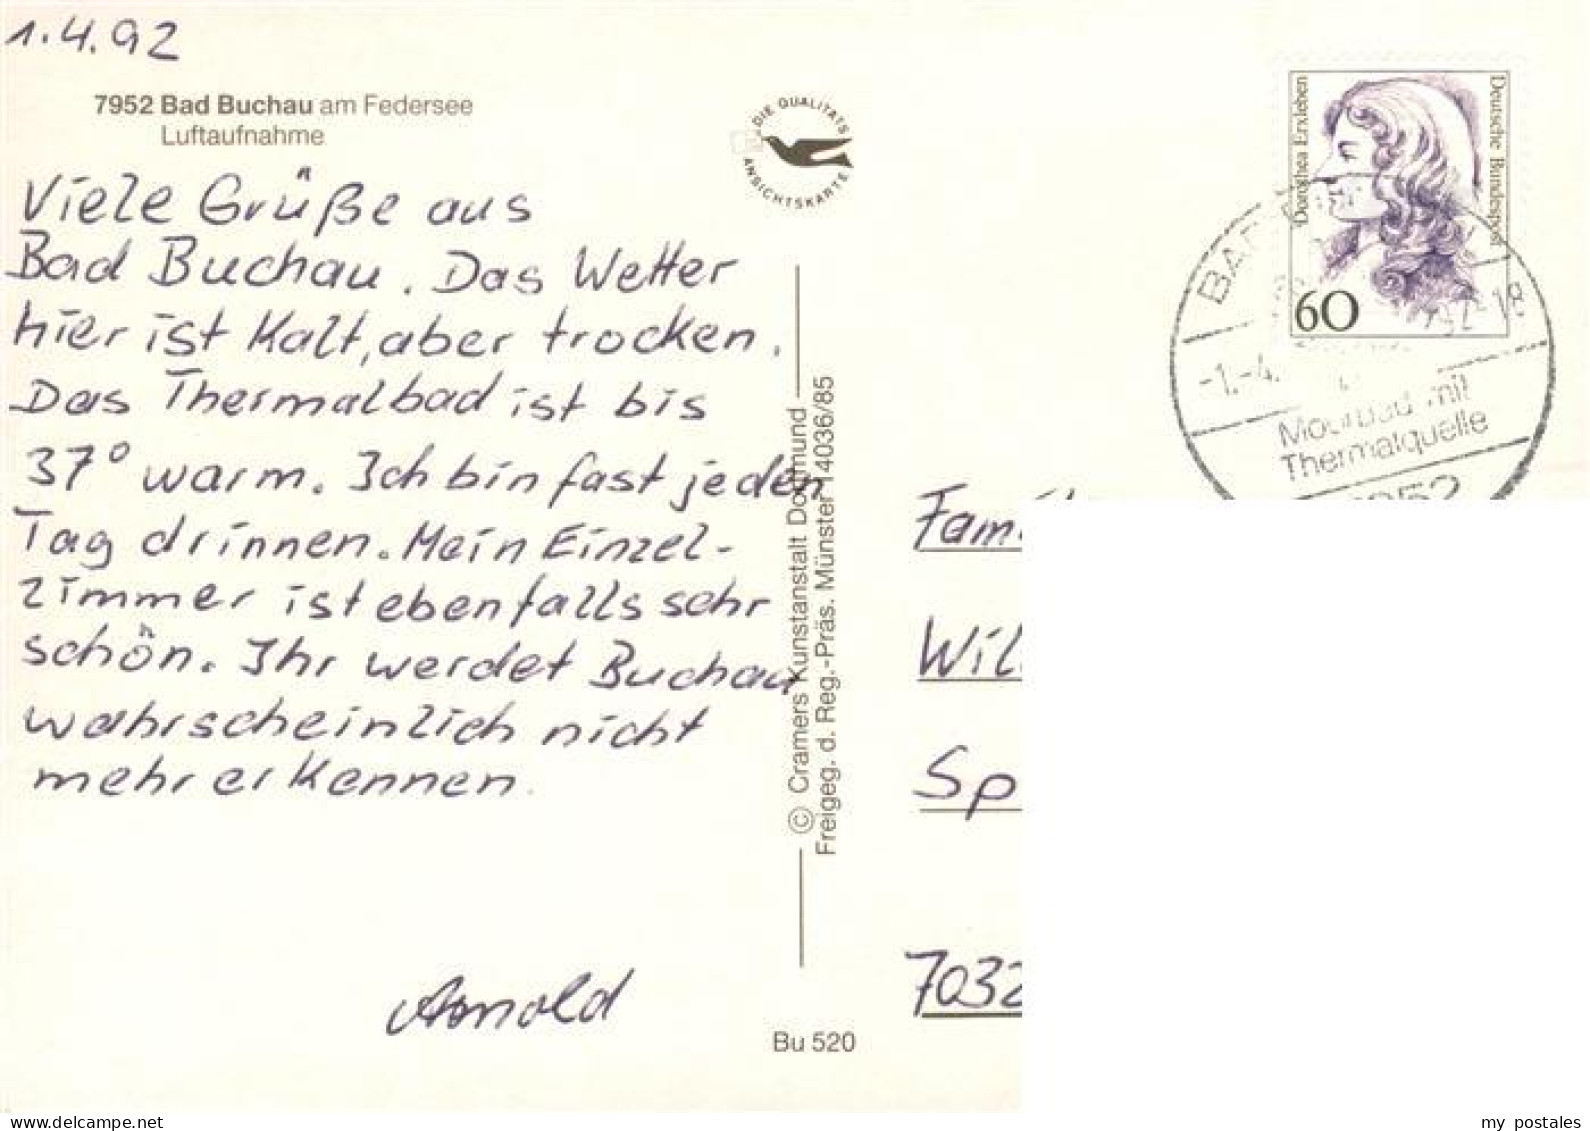 1.4.92
7952 Bad Buchau am Federsee
Luftaufnahme
DIE QUALITÄTS
ANSICHTSKARTE
Viele Grüße aus
Bad Buchau. Das Wetter
hier ist kalt, aber trocken.
Das Thermalbad ist bis
37° warm. Ich bin fast jeden
Tag drinnen. Mein Einzel-
zimmer ist ebenfalls sehr
schön. Ihr werdet Buchau
wahrscheinlich nicht
mehr erkennen.
Arnold
© Cramers Kunstanstalt Dortmund
Freigeg. d. Reg.-Präs. Münster 14036/85
Bu 520
Dorothea Erxleben
Deutsche Bundespost
60
BAD
-1.-4.
Moorbad mit
Thermalquelle
Fam
Wil
Sp
7032
my postales